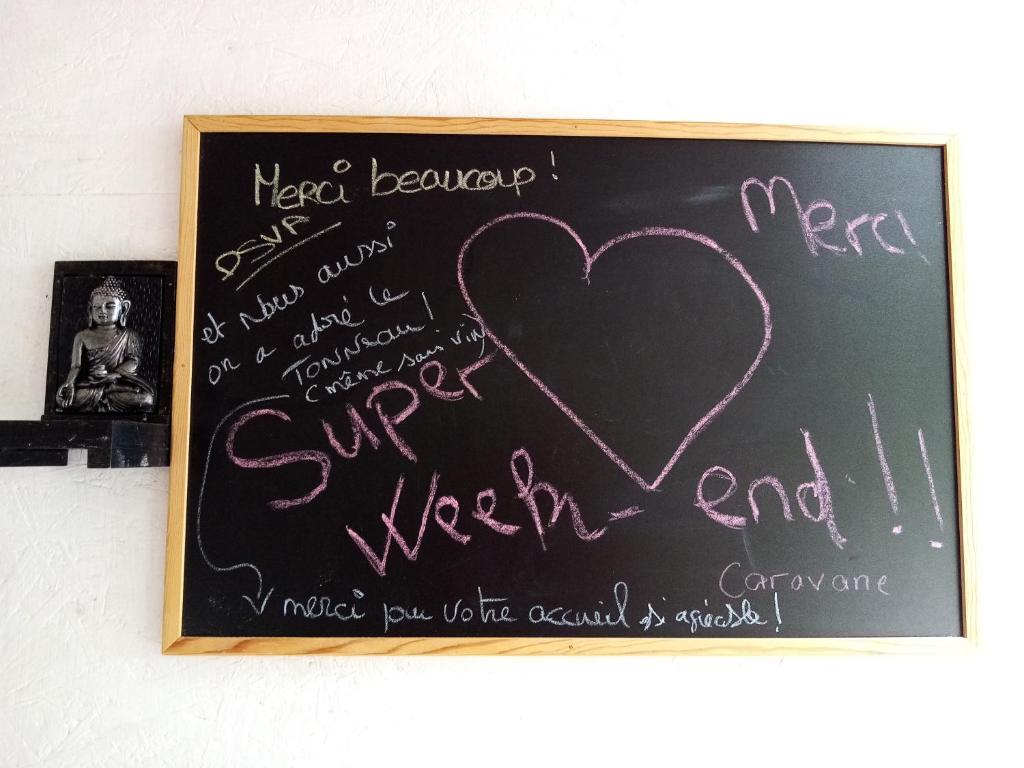 Merci beaucoup !
DSVP
et Nous aussi
on a adoré le
Tonneau !
(même sans vin)
Merci
Super
Week-end !!
Caravane
merci pour votre accueil si agréable !